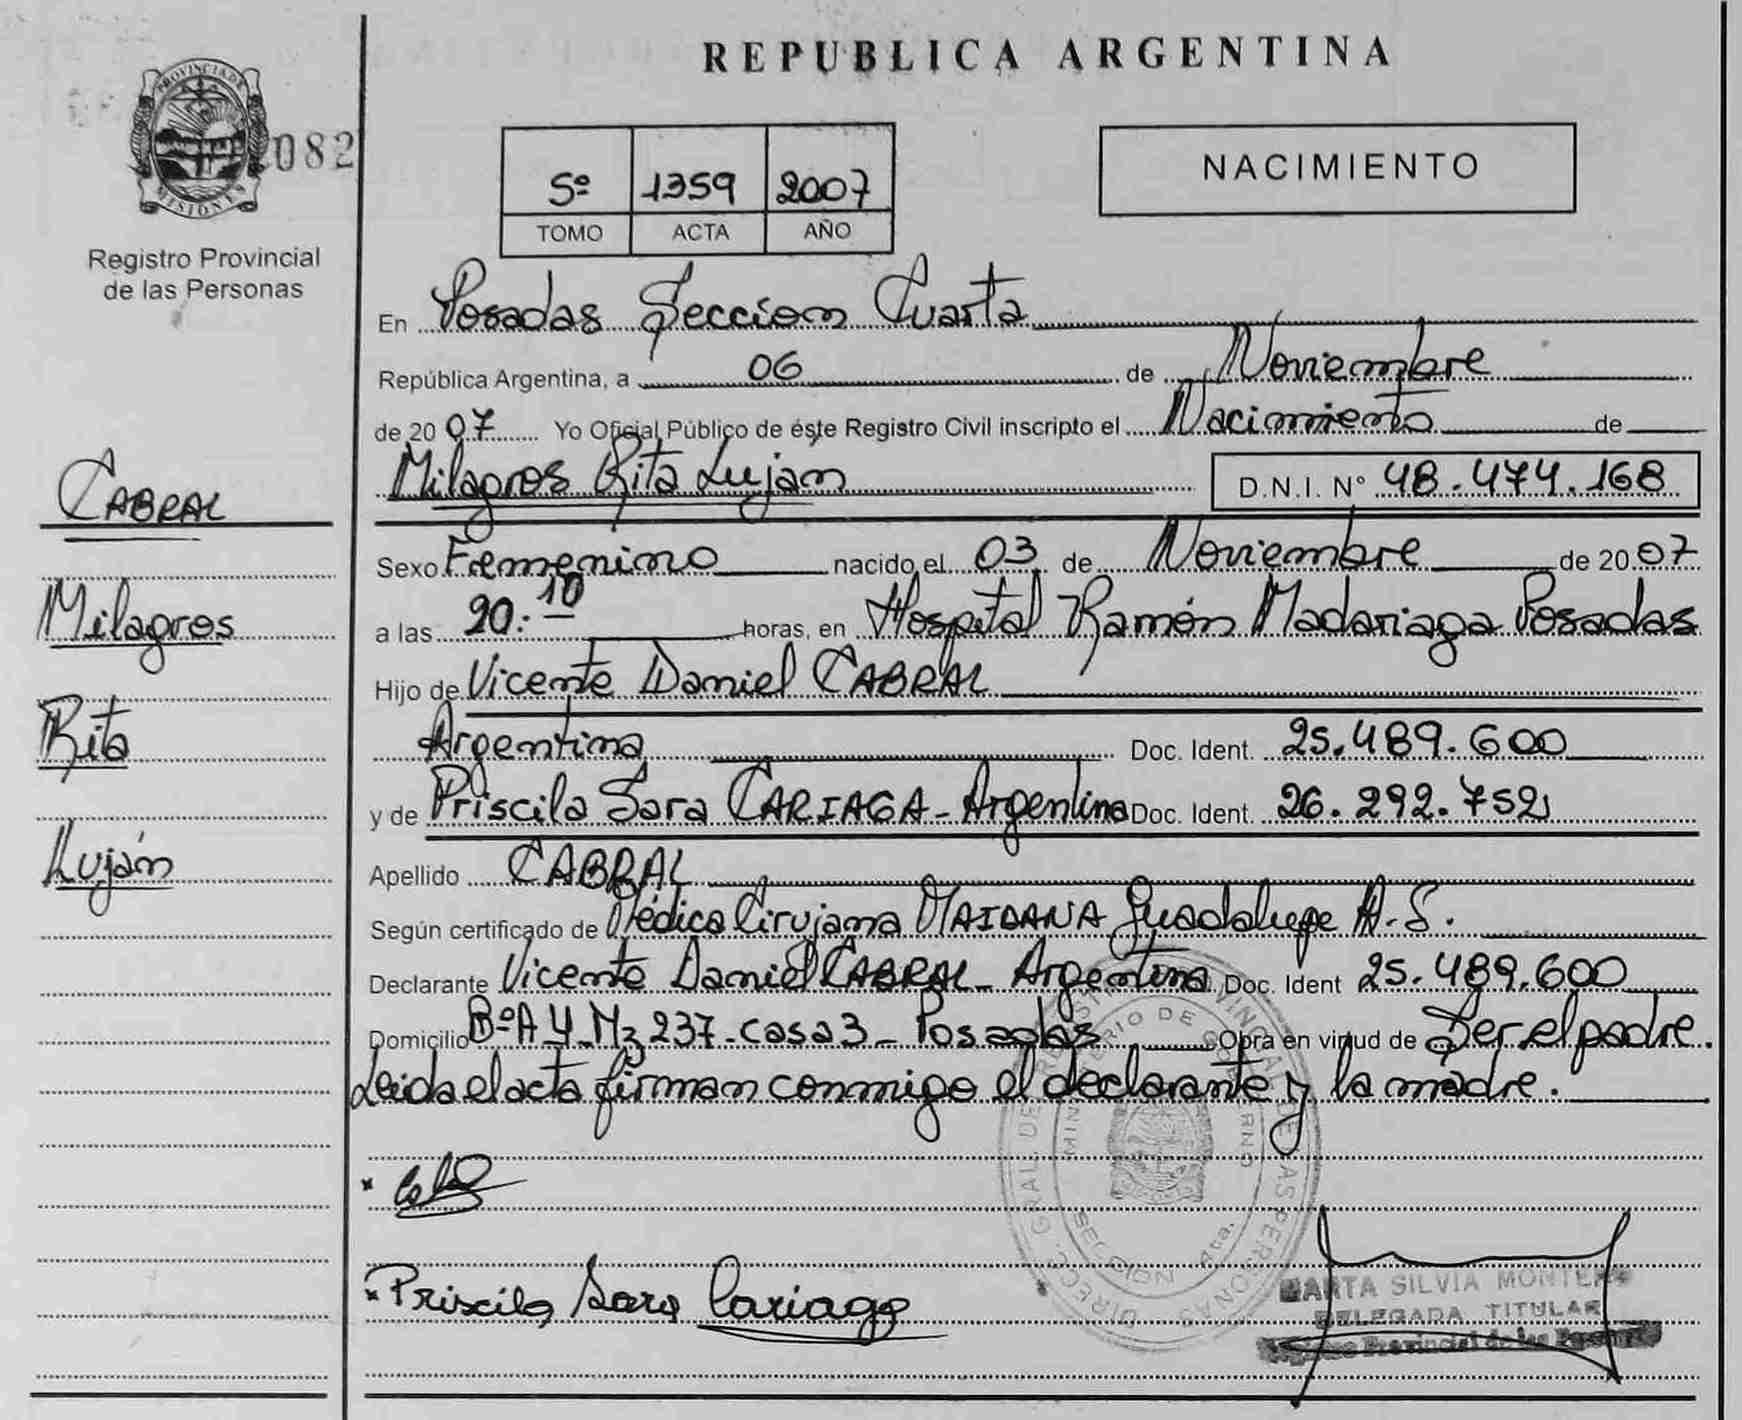 REPUBLICA ARGENTINA
PROVINCIA DE
MISIONES
082
Registro Provincial
de las Personas
5º 1359 2007
TOMO ACTA AÑO
NACIMIENTO
En Posadas Seccion Cuarta
República Argentina, a 06 de Noviembre
de 2007 Yo Oficial Público de éste Registro Civil inscripto el Nacimiento de
Milagros Rita Luján D.N.I. Nº 48.474.168
CABRAL
Milagros
Rita
Luján
Sexo Femenino nacido el 03 de Noviembre de 2007
a las 20:10 horas, en Hospital Ramón Madariaga Posadas
Hijo de Vicente Daniel CABRAL
Argentina Doc. Ident. 25.489.600
y de Priscila Sara CARIAGA - Argentina Doc. Ident. 26.292.752
Apellido CABRAL
Según certificado de Médica Cirujana MAIDANA Guadalupe A. S.
Declarante Vicente Daniel CABRAL - Argentina Doc. Ident 25.489.600
Domicilio Bº A 4 Mz 237 - casa 3 - Posadas Obra en virtud de Ser el padre.
Leida el acta firman conmigo el declarante y la madre.
Priscila Sara Cariaga
DIRECC. GRAL. DEL REGISTRO PROVINCIAL DE LAS PERSONAS
MINISTERIO DE GOBIERNO
SECCION 4ta.
MARTA SILVIA MONTERO
DELEGADA TITULAR
Registro Provincial de las Personas